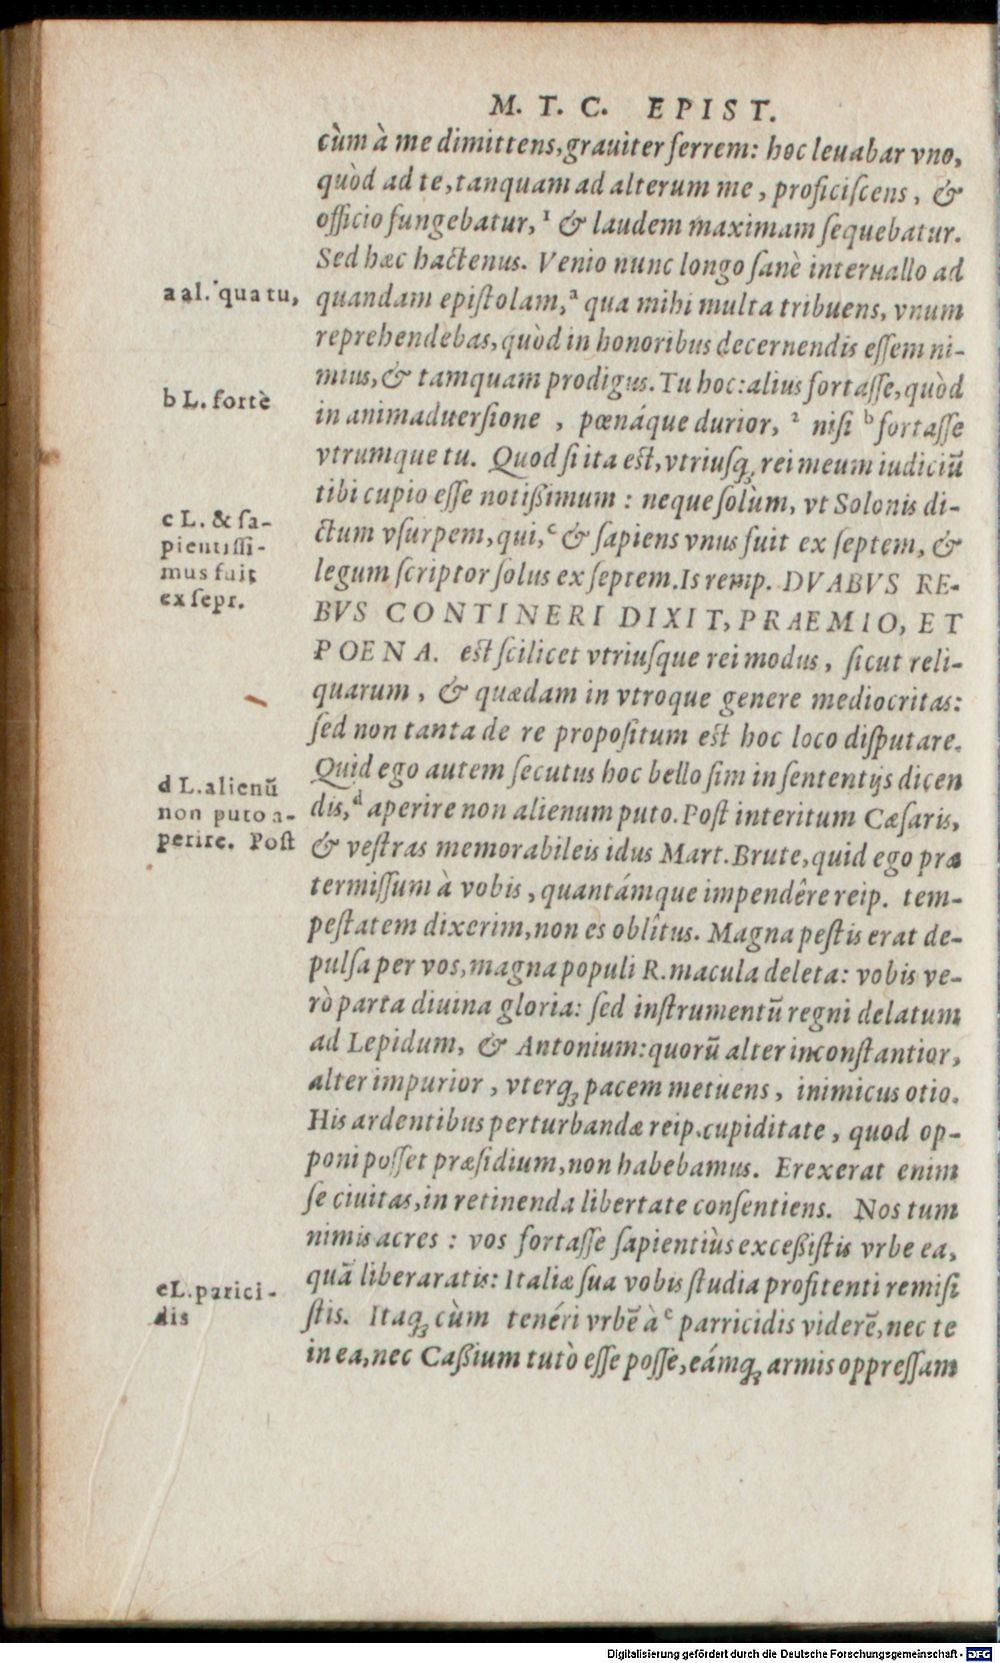 M. T. C. EPIST.
cùm à me dimittens, grauiter ferrem: hoc leuabar vno,
quòd ad te, tanquam ad alterum me, proficiſcens, &
officio fungebatur, ¹ & laudem maximam ſequebatur.
Sed hæc hactenus. Venio nunc longo ſanè interuallo ad
a al. qua tu,
quandam epiſtolam, ª qua mihi multa tribuens, vnum
reprehendebas, quòd in honoribus decernendis eſſem ni-
mius, & tamquam prodigus. Tu hoc: alius fortaſſe, quòd
b L. fortè
in animaduerſione , pœnáque durior, ² niſi ᵇ fortaſſe
vtrumque tu. Quod ſi ita eſt, vtriuſq; rei meum iudiciū
tibi cupio eſſe notißimum : neque ſolùm, vt Solonis di-
c L. & ſa-
pientiſſi-
mus fuit
ex ſept.
ctum vſurpem, qui, ᶜ & ſapiens vnus fuit ex ſeptem, &
legum ſcriptor ſolus ex ſeptem. Is remp. DVABVS RE-
BVS CONTINERI DIXIT, PRAEMIO, ET
POENA. eſt ſcilicet vtriuſque rei modus, ſicut reli-
quarum, & quædam in vtroque genere mediocritas:
ſed non tanta de re propoſitum eſt hoc loco diſputare.
Quid ego autem ſecutus hoc bello ſim in ſententijs dicen
d L. alienū
non puto a-
perire. Poſt
dis, ᵈ aperire non alienum puto. Poſt interitum Cæſaris,
& veſtras memorabileis idus Mart. Brute, quid ego præ
termiſſum à vobis, quantámque impendêre reip. tem-
peſtatem dixerim, non es oblîtus. Magna peſtis erat de-
pulſa per vos, magna populi R. macula deleta: vobis ve-
rò parta diuina gloria: ſed inſtrumentū regni delatum
ad Lepidum, & Antonium: quorū alter inconſtantior,
alter impurior, vterq; pacem metuens, inimicus otio.
His ardentibus perturbandæ reip. cupiditate, quod op-
poni poſſet præſidium, non habebamus. Erexerat enim
ſe ciuitas, in retinenda libertate conſentiens. Nos tum
nimis acres : vos fortaſſe ſapientiùs exceßiſtis vrbe ea,
e L. parici-
dis
quā liberaratis: Italiæ ſua vobis ſtudia profitenti remiſi
ſtis. Itaq; cùm tenéri vrbē à ᵉ parricidis viderē, nec te
in ea, nec Caßium tutò eſſe poſſe, eámq; armis oppreſſam
Digitalisierung gefördert durch die Deutsche Forschungsgemeinschaft - DFG